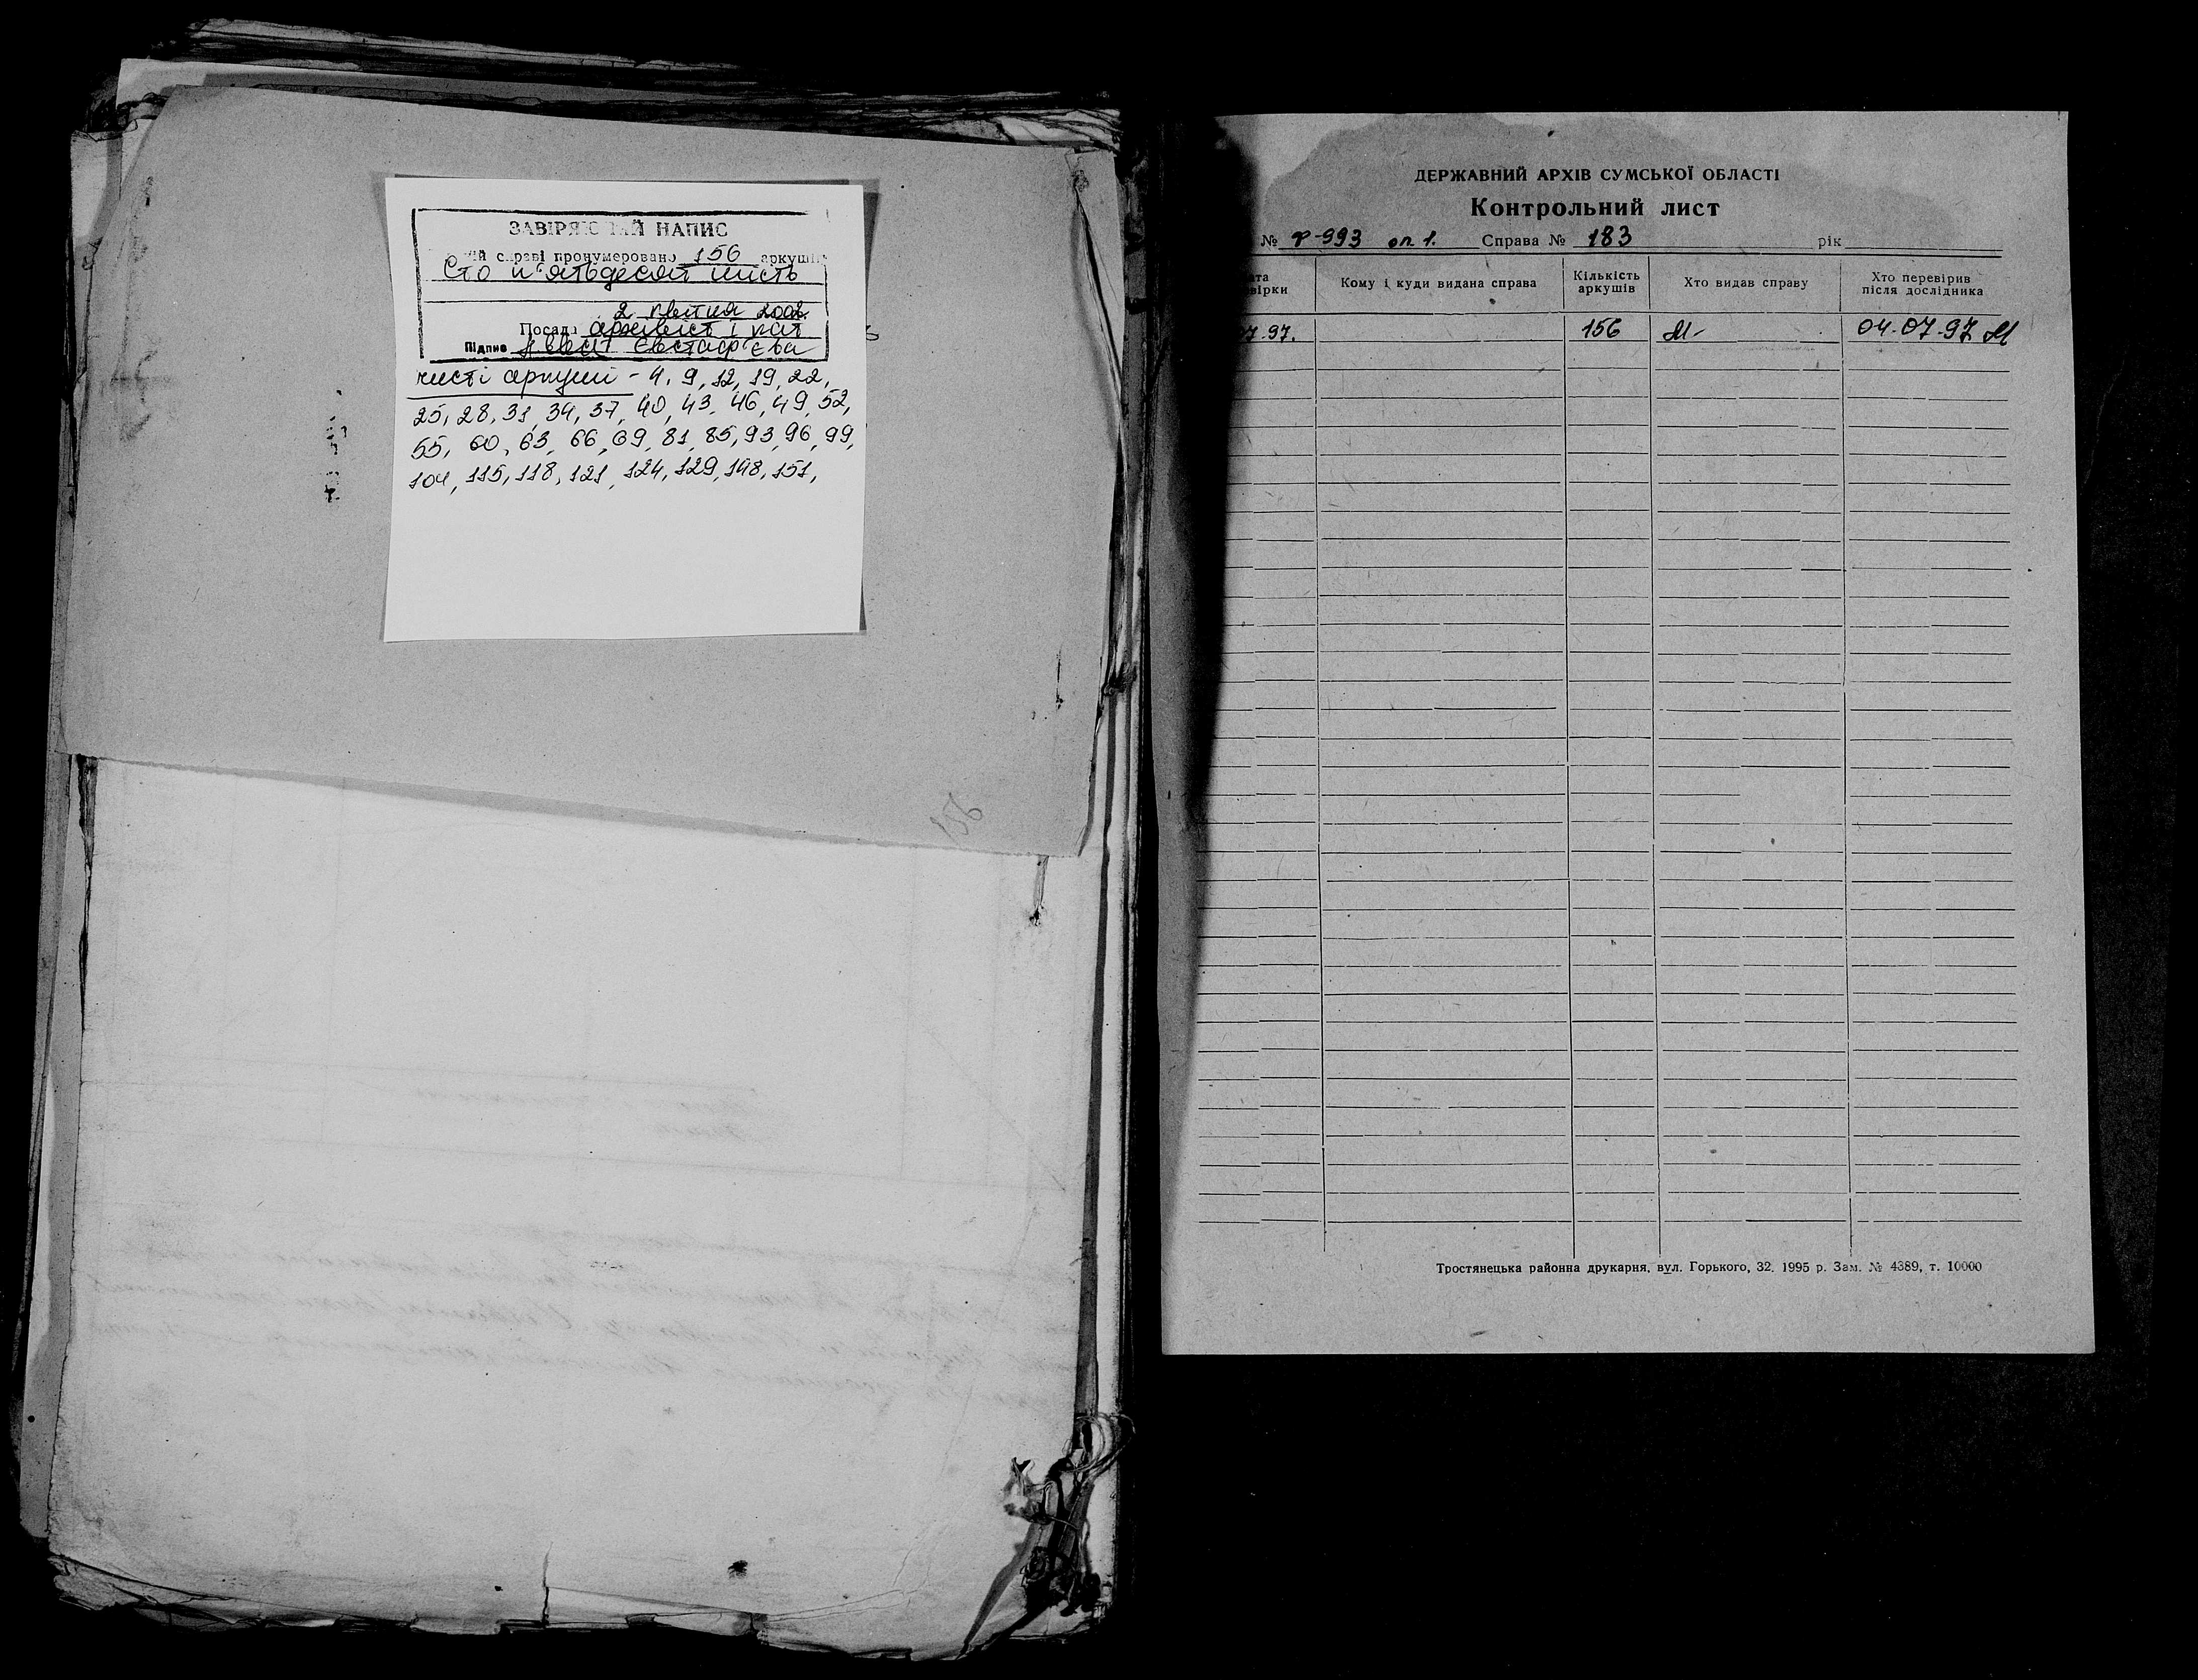 ЗАВІРЯЄ ИЙ НАПИС
ій справі пронумеровано 156 аркуші
Сто п'ятьдесят шість
2 квітня 2002.
Посада архивіст і кат
Підпис Євстаф'єва
чисті аркуші - 4, 9, 12, 19, 22,
25, 28, 31, 34, 37, 40, 43, 46, 49, 52,
55, 60, 63, 66, 69, 81, 85, 93, 96, 99,
104, 115, 118, 121, 124, 129, 148, 151,
156
ДЕРЖАВНИЙ АРХІВ СУМСЬКОЇ ОБЛАСТІ
Контрольний лист
№ Ф-993 оп. 1. Справа № 183 рік
ата
вірки
Кому і куди видана справа
Кількість
аркушів
Хто видав справу
Хто перевірив
після дослідника
07.97. 156 М 04.07.97 М
Тростянецька районна друкарня, вул. Горького, 32. 1995 р. Зам. № 4389, т. 10000